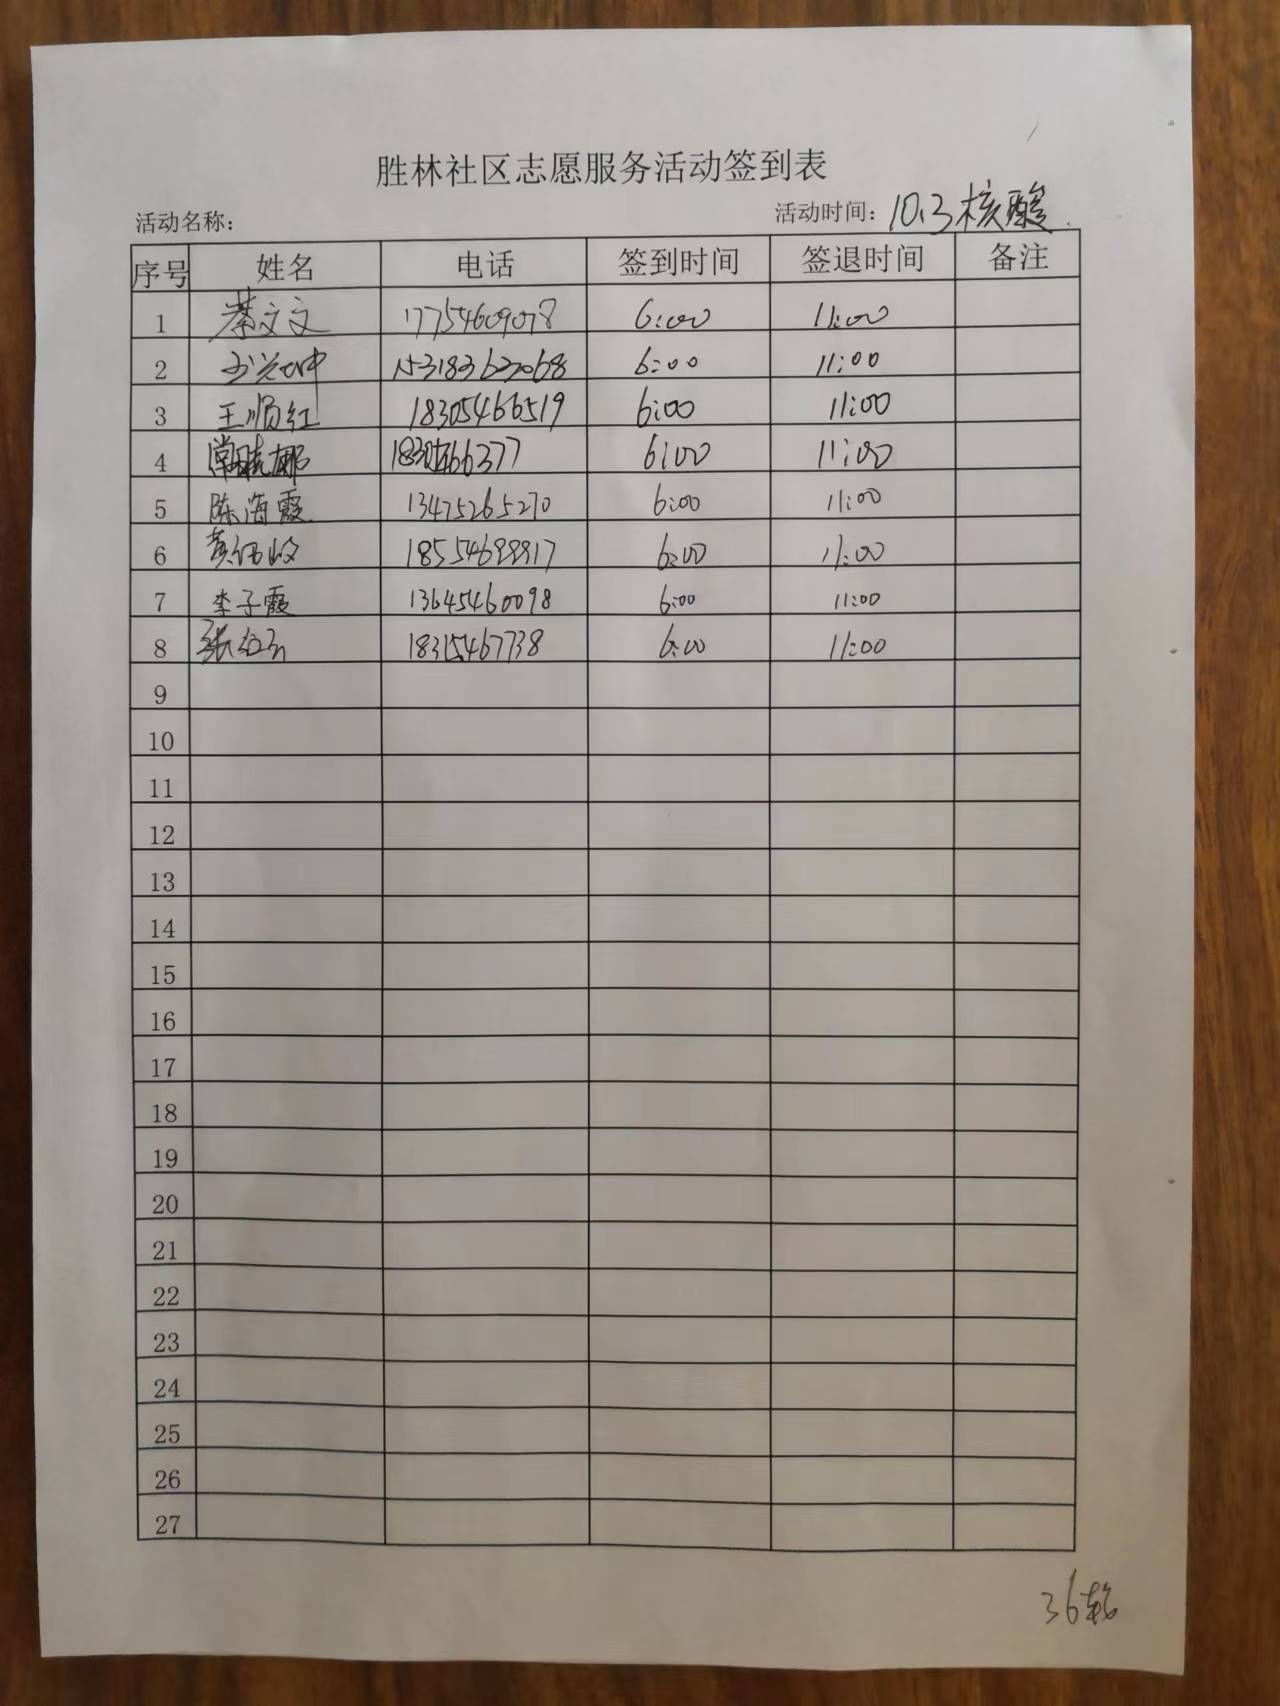 胜林社区志愿服务活动签到表
活动名称: 活动时间: 10.3核酸
序号 姓名 电话 签到时间 签退时间 备注
1 蔡文文 17754609078 6:00 11:00
2 15318363068 6:00 11:00
3 王顺红 18305466519 6:00 11:00
4 常晓娜 6:00 11:00
5 陈海霞 13475265270 6:00 11:00
6 6:00 11:00
7 李子霞 13645460098 6:00 11:00
8 18315467738 6:00 11:00
9
10
11
12
13
14
15
16
17
18
19
20
21
22
23
24
25
26
27
36轮